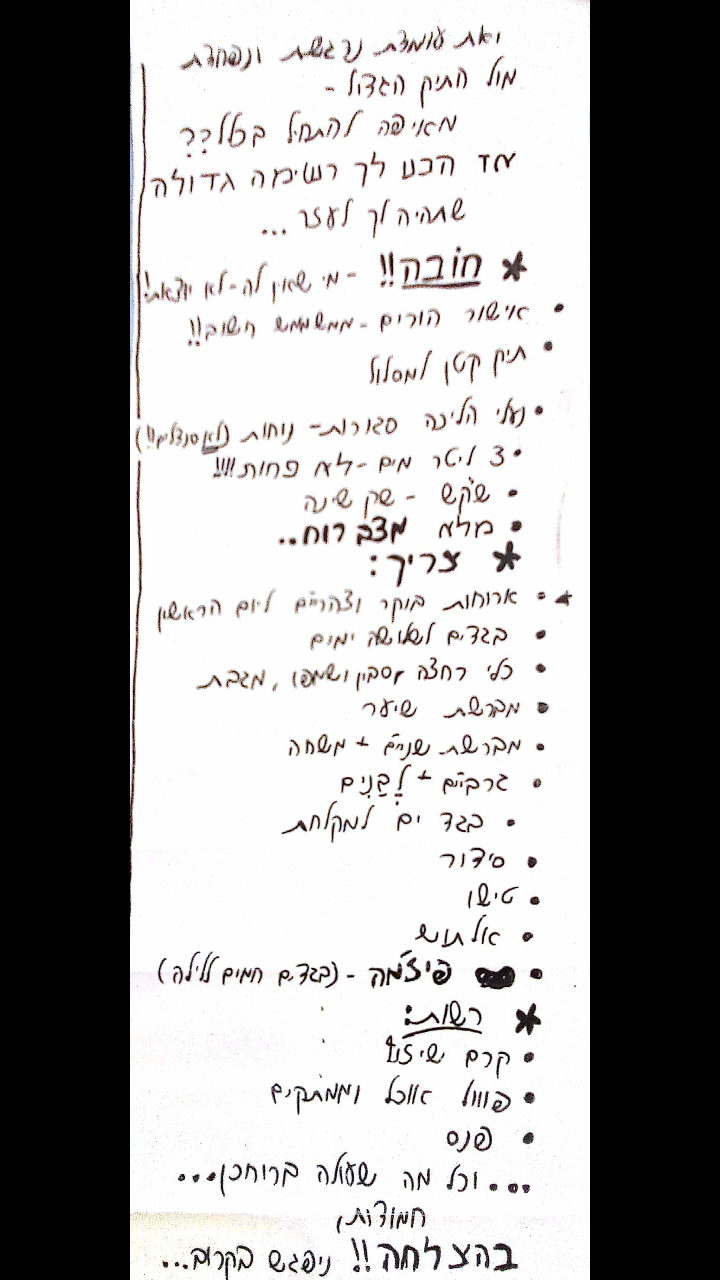 ואת עומדת נרגשת ונפחדת
מול התיק הגדול -
מאיפה להתחיל בכלל??
אז הכנו לך רשימה גדולה
שתהיה לך לעזר...
* חובה!! - מי שאין לה - לא יוצאת!
• אישור הורים - ממשמש חשוב!!
• תיק קטן למסלול
• נעלי הליכה סגורות - נוחות (לא סנדלים!!)
• 3 ליטר מים - לא פחות!!!!
• שקש - שק שינה
• מלא מצב רוח..
* צריך:
• ארוחות בוקר וצהריים ליום הראשון
• בגדים לשלושה ימים
• כלי רחצה, סבון ושמפו, מגבת
• מברשת שיער
• מברשת שניים + משחה
• גרביים + לְבָנִים
• בגד ים למקלחת
• סידור
• טישו
• אל תוש
• פיז'מה - (בגדים חמים ללילה)
* רשות:
• קרם שיזוף
• פווול אווכל וממתקים
• פנס
... וכל מה שעולה ברוחכן...
חמודות,
בהצלחה!! ניפגש בקרוב...